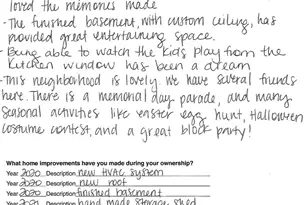 loved the memories made
- The finished basement, with custom ceiling, has
provided great entertaining space.
- Being able to watch the kids play from the
kitchen window has been a dream
- This neighborhood is lovely. we have several friends
here. There is a memorial day parade, and many
seasonal activities like easter egg hunt, Halloween
costume contest, and a great block party!
What home improvements have you made during your ownership?
Year 2020 Description new HVAC system
Year 2020 Description new roof
Year 2020 Description finished basement
Year 2021 Description hand made storage shed